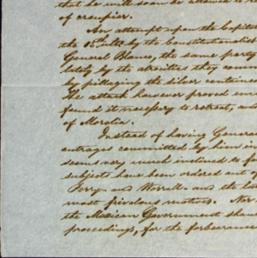 that he will soon be allowed to re
of occupier.
An attempt upon the Capital
the 15th ulto by the Constitutionalist
General Blanco, the same party
lately by the atrocities they com
by pillaging the silver contained
The attack however proved
found it necessary to retreat, and
of Morelia.
Instead of having General
outrages committed by him in
seems very much inclined to
subjects have been ordered out of
Perry and Worrall and the
most frivolous matters. Nor
the Mexican Government
proceedings, for the forbearance